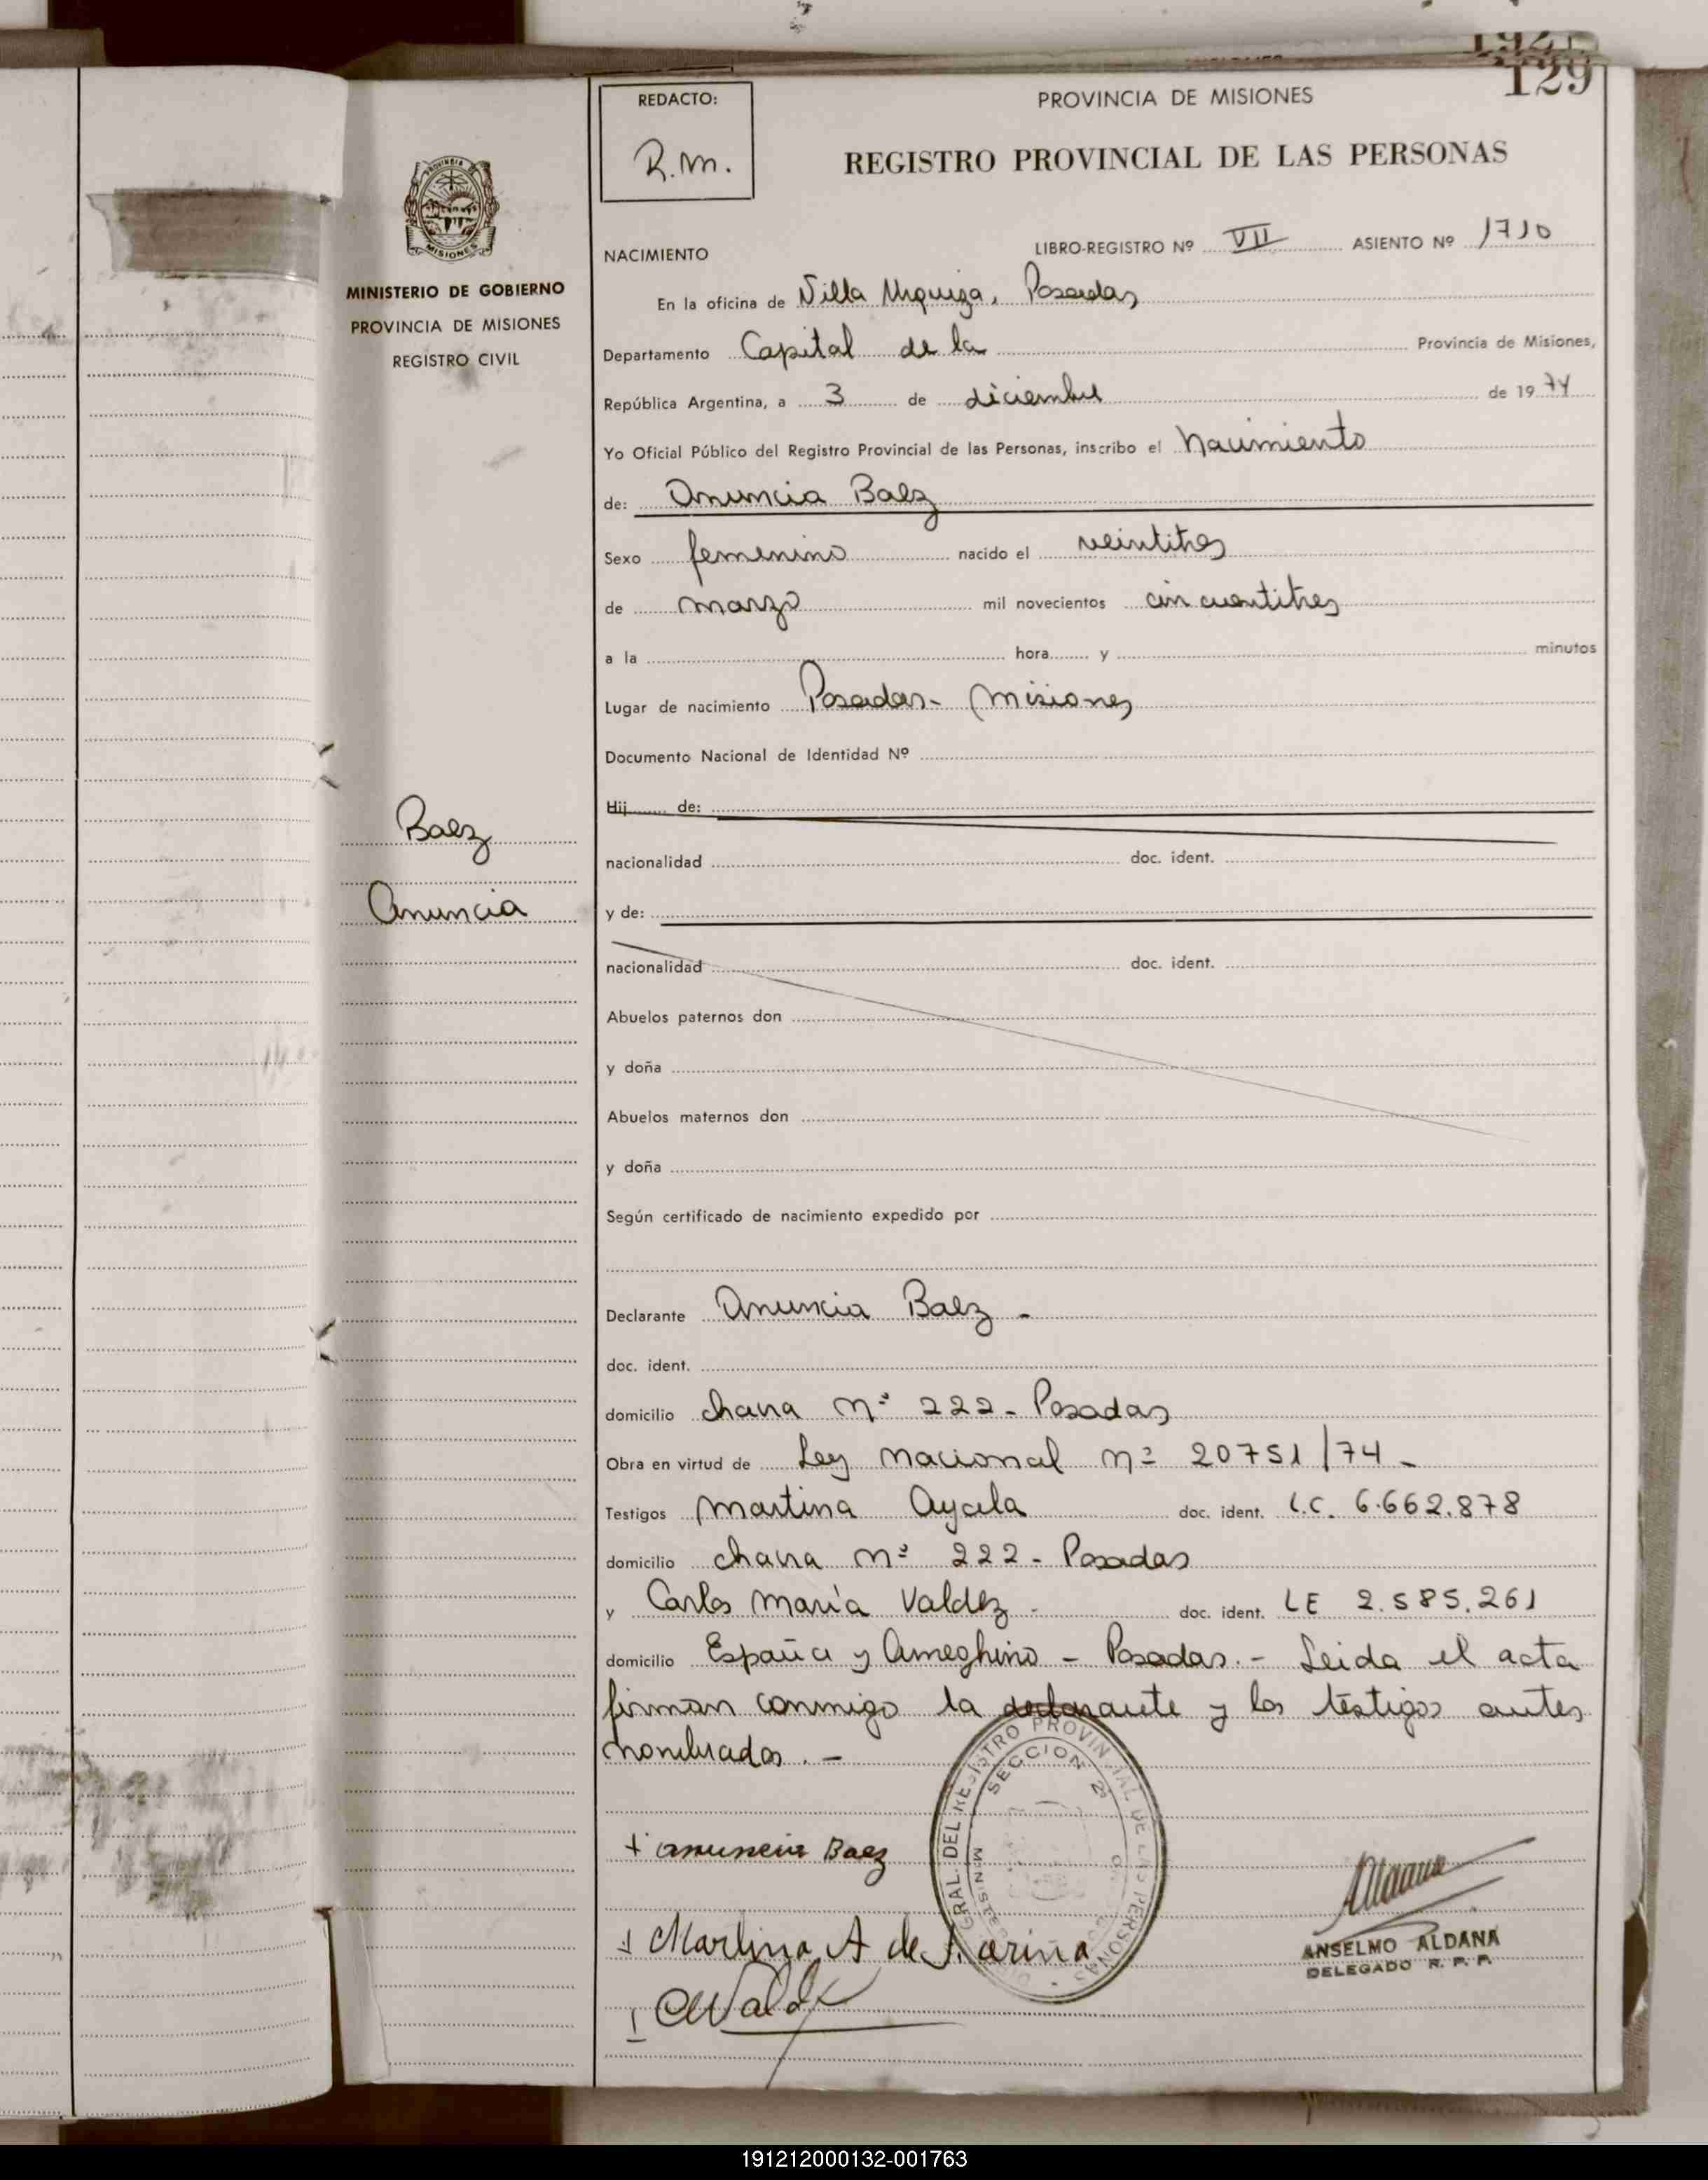 192
129
REDACTO:
R.M.
PROVINCIA DE MISIONES
REGISTRO PROVINCIAL DE LAS PERSONAS
PROVINCIA DE
MISIONES
MINISTERIO DE GOBIERNO
PROVINCIA DE MISIONES
REGISTRO CIVIL
NACIMIENTO LIBRO-REGISTRO Nº VII ASIENTO Nº 1710
En la oficina de Villa Urquiza, Posadas
Departamento Capital de la Provincia de Misiones,
República Argentina, a 3 de diciembre de 1974
Yo Oficial Público del Registro Provincial de las Personas, inscribo el Nacimiento
de: Anuncia Baez
Sexo femenino nacido el veintitres
de marzo mil novecientos cincuentitres
a la hora y minutos
Lugar de nacimiento Posadas - Misiones
Documento Nacional de Identidad Nº
Hij de:
nacionalidad doc. ident.
y de:
nacionalidad doc. ident.
Abuelos paternos don
y doña
Abuelos maternos don
y doña
Según certificado de nacimiento expedido por
Baez
Anuncia
Declarante Anuncia Baez -
doc. ident.
domicilio chana Nº 222 - Posadas
Obra en virtud de Ley Nacional Nº 20751/74 -
Testigos Martina Ayala doc. ident. L.C. 6.662.878
domicilio chana Nº 222 - Posadas
y Carlos María Valdez - doc. ident. LE 2.585.261
domicilio España y Ameghino - Posadas. - Leida el acta
firman conmigo la declarante y los testigos antes
nombrados. -
GRAL. DEL REGISTRO PROVINCIAL DE LAS PERSONAS
SECCION 2ª
+ anuncia Baez
Martina A de Fariña
CMValdez
ANSELMO ALDANA
DELEGADO R. P. P.
191212000132-001763